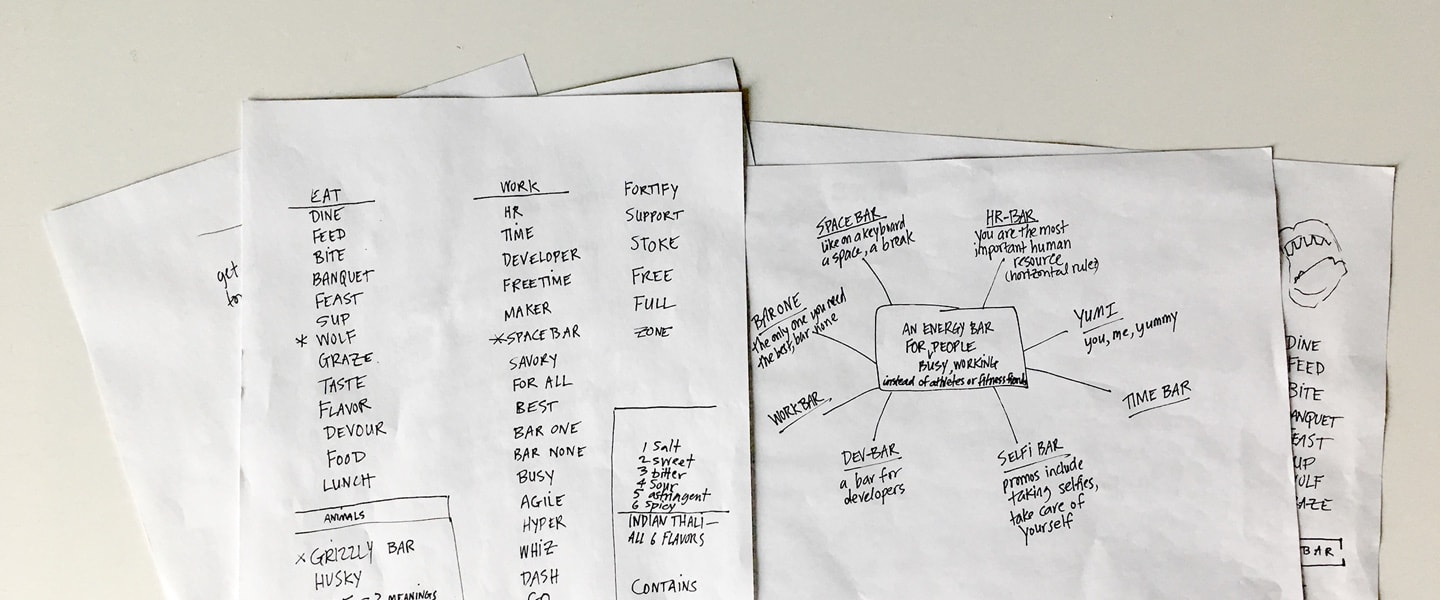 get
EAT
DINE
FEED
BITE
BANQUET
FEAST
SUP
* WOLF
GRAZE.
TASTE
FLAVOR
DEVOUR
FOOD
LUNCH
ANIMALS
x GRIZZLY BAR
HUSKY
2 MEANINGS
WORK
HR
TIME
DEVELOPER
FREETIME
MAKER
* SPACEBAR
SAVORY
FOR ALL
BEST
BAR ONE
BAR NONE
BUSY
AGILE
HYPER
WHIZ
DASH
GO
FORTIFY
SUPPORT
STOKE
FREE
FULL
ZONE
1 Salt
2 sweet
3 bitter
4 Sour
5 astringent
6 Spicy
INDIAN THALI—
ALL 6 FLAVORS
CONTAINS
SPACEBAR
like on a keyboard
a space, a break
HR-BAR
you are the most
important human
resource
(horizontal rule)
BARONE
the only one you need
the best, bar none
AN ENERGY BAR
FOR PEOPLE
BUSY, WORKING
instead of athletes or fitness fiends
YUMI
you, me, yummy
WORKBAR
TIME BAR
DEV-BAR
a bar for
developers
SELFI BAR
promos include
taking selfies,
take care of
yourself
DINE
FEED
BITE
ANQUET
EAST
UP
OLF
AZE
BAR